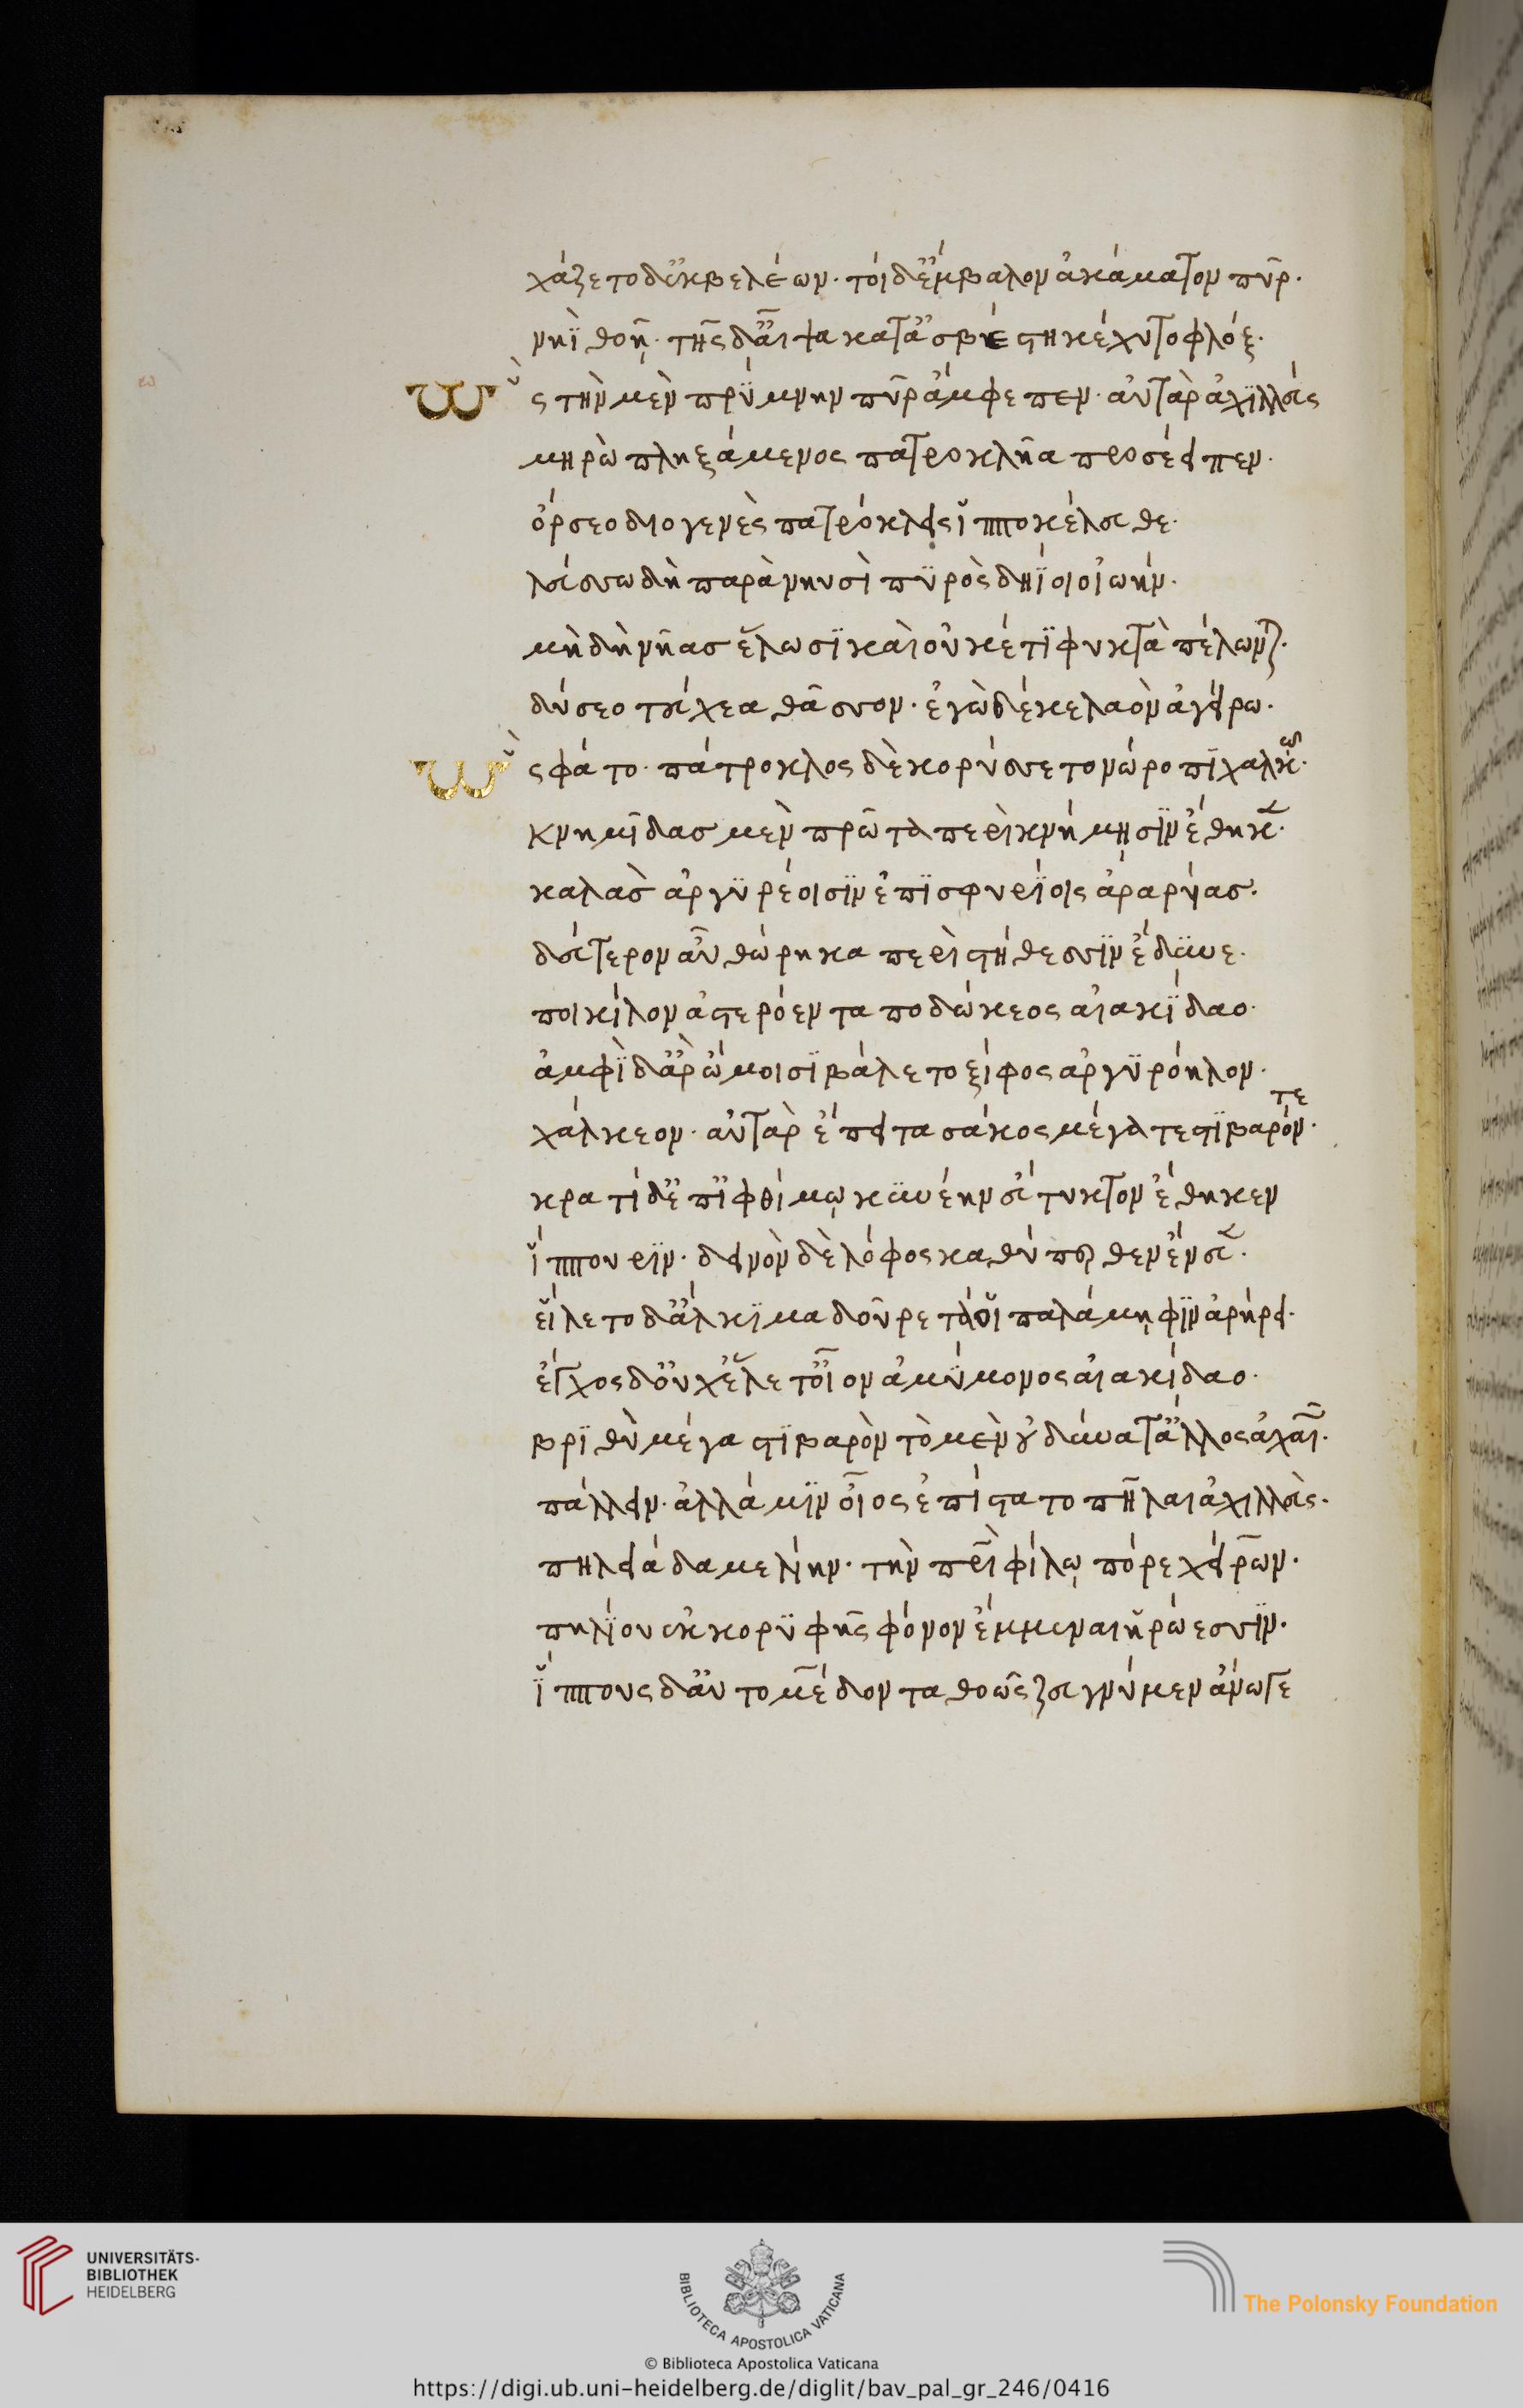 χάζετο δ' ἐκ βελέων· τοὶ δ' ἔμβαλον ἀκάματον πῦρ·
νηῒ θοῇ· τῆς δ' αἶψα κατ' ἀσβέστη κέχυτο φλόξ·
Ὣς τὴν μὲν πρύμνην πῦρ ἄμφεπεν· αὐτὰρ ἀχιλλεὺς
μηρὼ πληξάμενος πατροκλῆα προσέειπεν·
ὄρσεο διογενὲς πατρόκλεις ἱπποκέλευθε·
λεύσσω δὴ παρὰ νηυσὶ πυρὸς δηΐοιο ἰωήν·
μὴ δὴ νῆας ἕλωσι καὶ οὐκέτι φυκτὰ πέλωνται·
δύσεο τεύχεα θᾶσσον· ἐγὼ δέ κε λαὸν ἀγείρω·
Ὣς φάτο· πάτροκλος δὲ κορύσσετο νώροπι χαλκῶ·
κνημῖδας μὲν πρῶτα περὶ κνήμησιν ἔθηκεν·
καλὰς ἀργυρέοισιν ἐπισφυρίοις ἀραρυίας·
δεύτερον αὖ θώρηκα περὶ στήθεσσιν ἔδυνε·
ποικίλον ἀστερόεντα ποδώκεος αἰακίδαο·
ἀμφὶ δ' ἄρ' ὤμοισι βάλετο ξίφος ἀργυρόηλον·
χάλκεον· αὐτὰρ ἔπειτα σάκος μέγα τε στιβαρόν τε·
κρατὶ δ' ἐπ' ἰφθίμῳ κυνέην εὔτυκτον ἔθηκεν
ἵππουριν· δεινὸν δὲ λόφος καθύπερθεν ἔνευεν·
εἵλετο δ' ἄλκιμα δοῦρε τά οἱ παλάμηφιν ἀρήρει·
ἔγχος δ' οὐχ ἕλετ' οἶον ἀμύμονος αἰακίδαο·
βριθὺ μέγα στιβαρὸν τὸ μὲν οὐ δύνατ' ἄλλος ἀχαιῶν·
πάλλειν· ἀλλά μιν οἶος ἐπίστατο πῆλαι ἀχιλλεὺς·
πηλειάδα μελίην· τὴν πατρὶ φίλῳ πόρε χείρων·
πηλίου ἐκ κορυφῆς φόνον ἔμμεναι ἡρώεσσιν·
ἵππους δ' αὐτομέδοντα θοῶς ζευγνύμεν ἄνωγε
UNIVERSITÄTS-
BIBLIOTHEK
HEIDELBERG
BIBLIOTECA APOSTOLICA VATICANA
The Polonsky Foundation
© Biblioteca Apostolica Vaticana
https://digi.ub.uni-heidelberg.de/diglit/bav_pal_gr_246/0416